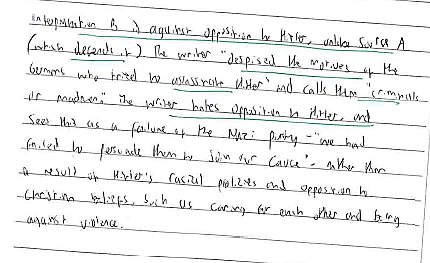 Interpretation B is against opposition to Hitler, unlike Source A
(which defends it). The writer "despised the motives of the
Germans who tried to assassinate Hitler" and calls them "criminals
or madmen." The writer hates opposition to Hitler, and
sees this as a failure of the Nazi party - "we had
failed to persuade them to join our cause" - rather than
a result of Hitler's racial policies and opposition to
Christian beliefs, such as caring for each other and being
against violence.